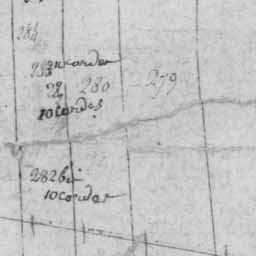 284
283 11 cordes
280 279
10 cordes
282 bis
10 cordes